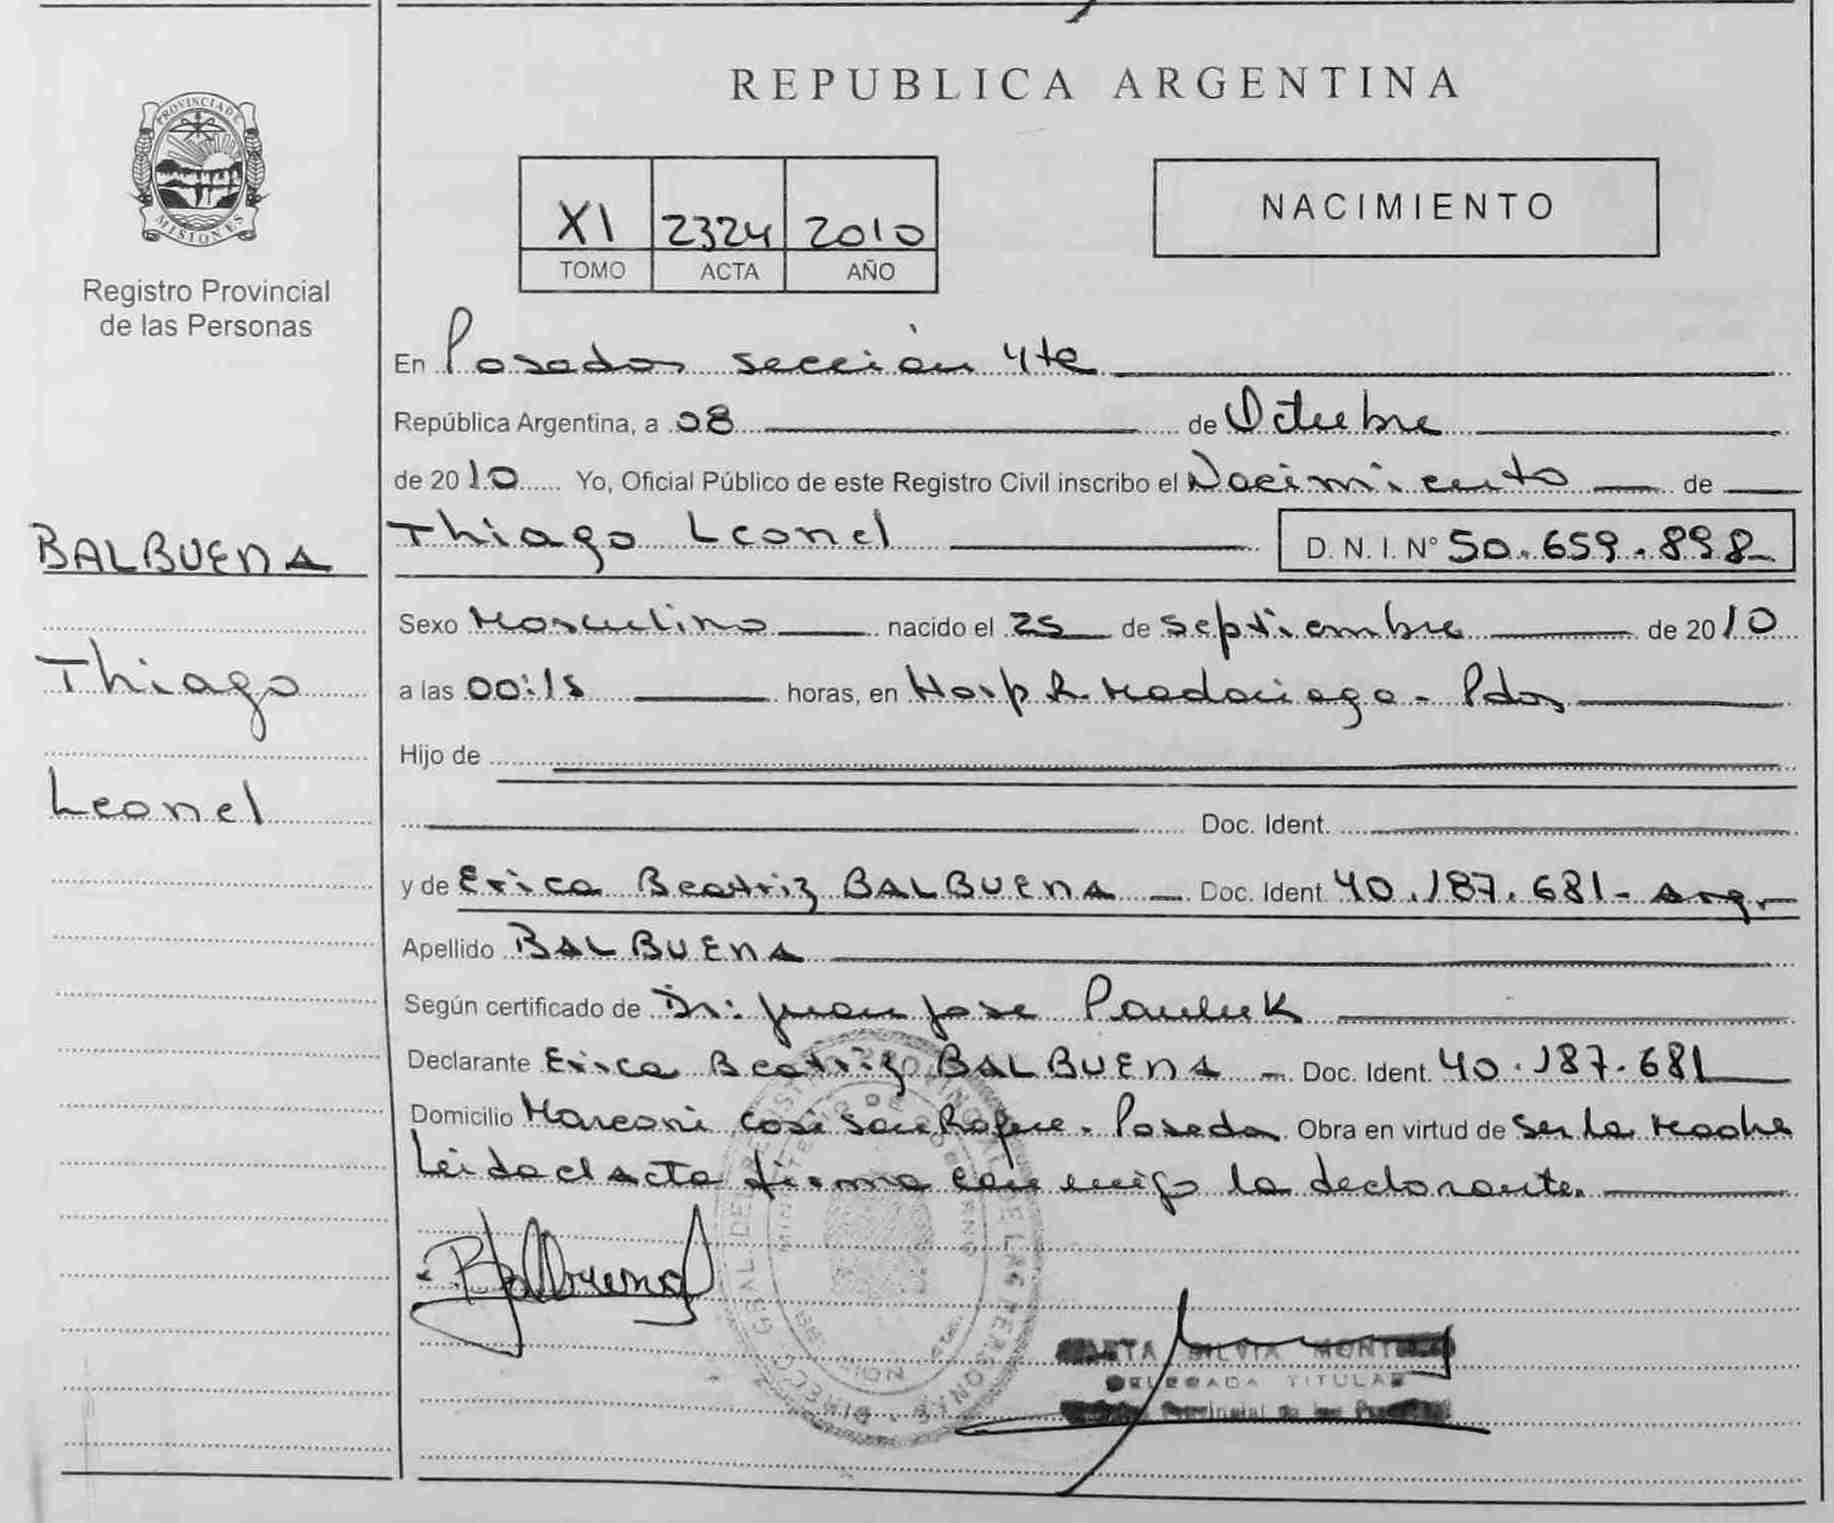 REPUBLICA ARGENTINA
PROVINCIA DE
MISIONES
Registro Provincial
de las Personas
XI 2324 2010
TOMO ACTA AÑO
NACIMIENTO
En Posadas sección 4ta
República Argentina, a 08 de Octubre
de 2010 Yo, Oficial Público de este Registro Civil inscribo el Nacimiento de
Thiago Leonel D. N. I. Nº 50.659.898
BALBUENA
Thiago
Leonel
Sexo Masculino nacido el 25 de septiembre de 2010
a las 00:15 horas, en Hosp R. Madariaga - Pdas
Hijo de
Doc. Ident.
y de Erica Beatriz BALBUENA Doc. Ident 40.187.681 - Arg.
Apellido BALBUENA
Según certificado de Dr: Juan Jose Pauluk
Declarante Erica Beatriz BALBUENA - Doc. Ident. 40.187.681
Domicilio Marconi casi San - Posadas Obra en virtud de ser la Madre
Leida el Acta firma conmigo la declarante.
Balbuena
SILVIA
DELEGADA TITULAR
Provincial de las